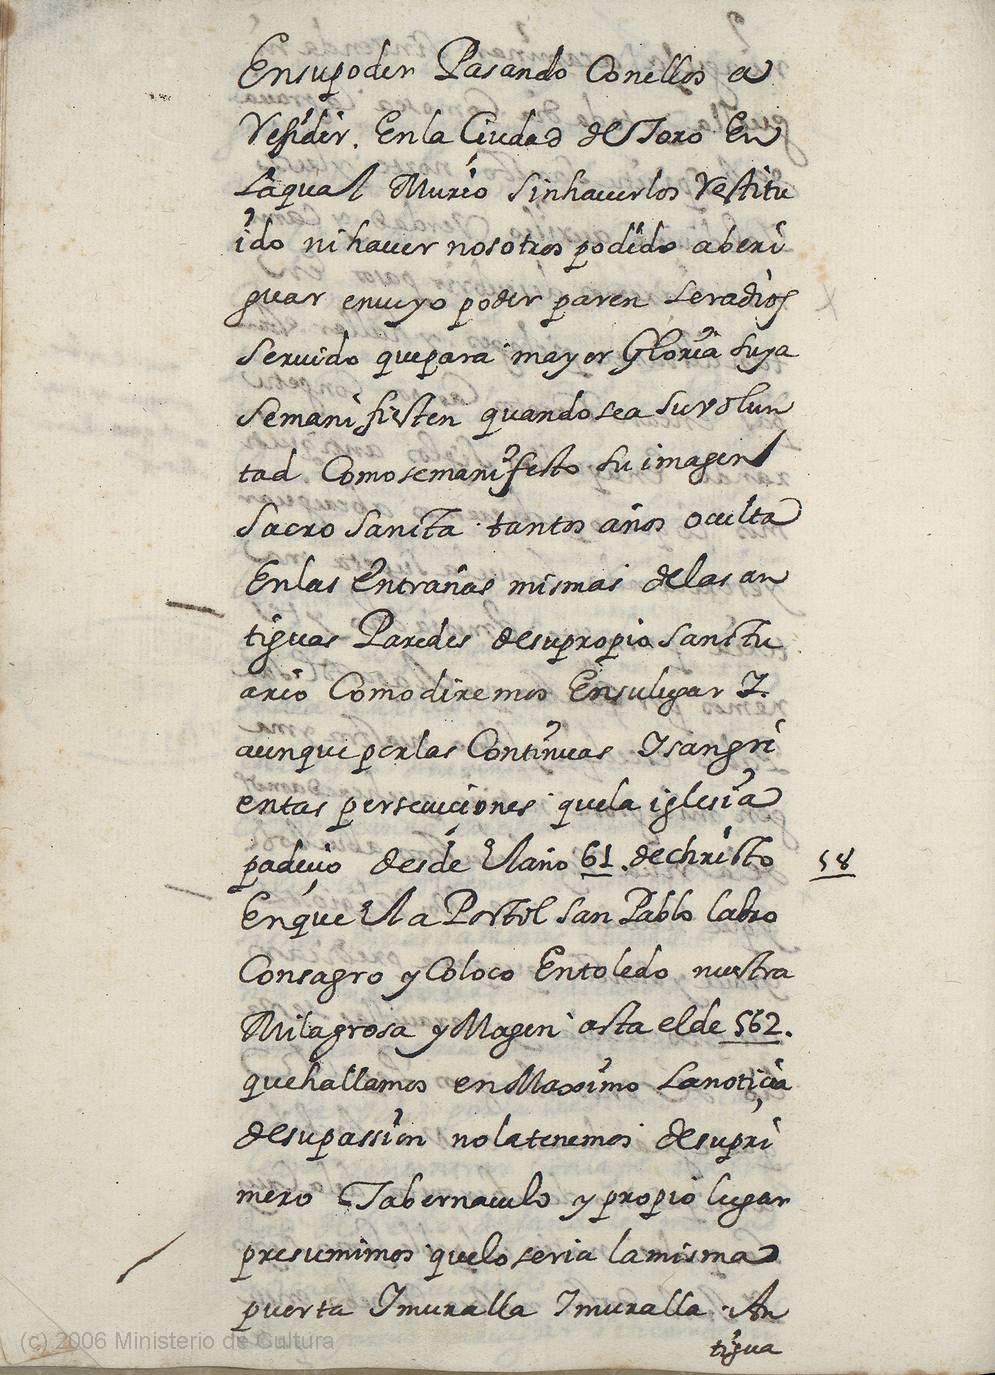 Ensupoder Pasando Conellos a
Vesidir. Enla Ciudad de Toro En
Laqual Murio Sinhauerlos Vestitu
ido ni hauer nosotros podido aberi
guar encuyo poder paren Seradios
Seruido quepara mayor Gloria Suya
Semanifiesten quando sea Suvolun
tad Comosemanifesto Su imagen
Sacro Sancta tantos años oculta
Enlas Entrañas mismas delas an
tiguas Paredes desupropio Sanctu
ario Comodiremos Ensulugar I.
aunque porlas Continuas Isangri
entas persecuciones quela iglesia
padecio desde Elaño 61. dechristo
58
Enque El a Postol San Pablo labro
Consagro y Coloco Entoledo nuestra
Milagrosa yMagen asta elde 562.
quehallamos enMaximo Lanoticia
desupassion nolatenemos desupri
mero Tabernaculo y propio lugar
presumimos quelo seria lamisma
puerta Imuralla Imuralla An
tigua
(c) 2006 Ministerio de Cultura